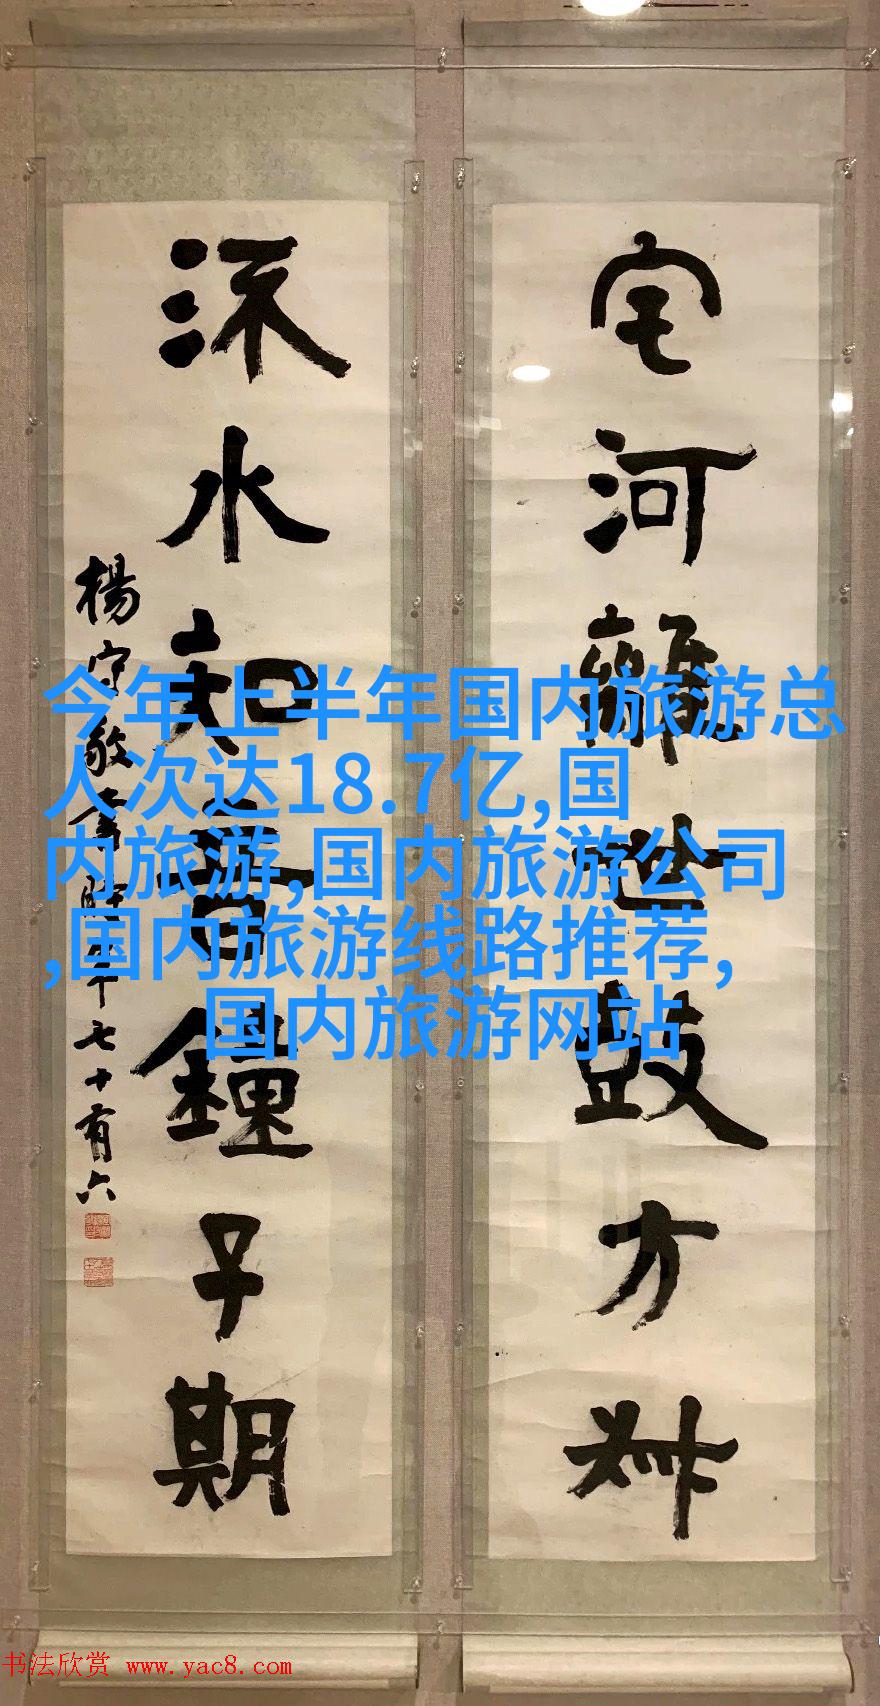 宅河離世鼓方叔
流水知音鍾子期
楊守敬書時年七十有六
今年上半年国内旅游总
人次达18.7亿,国
内旅游,国内旅游公司
,国内旅游线路推荐,
国内旅游网站
书法欣赏 www.yac8.com